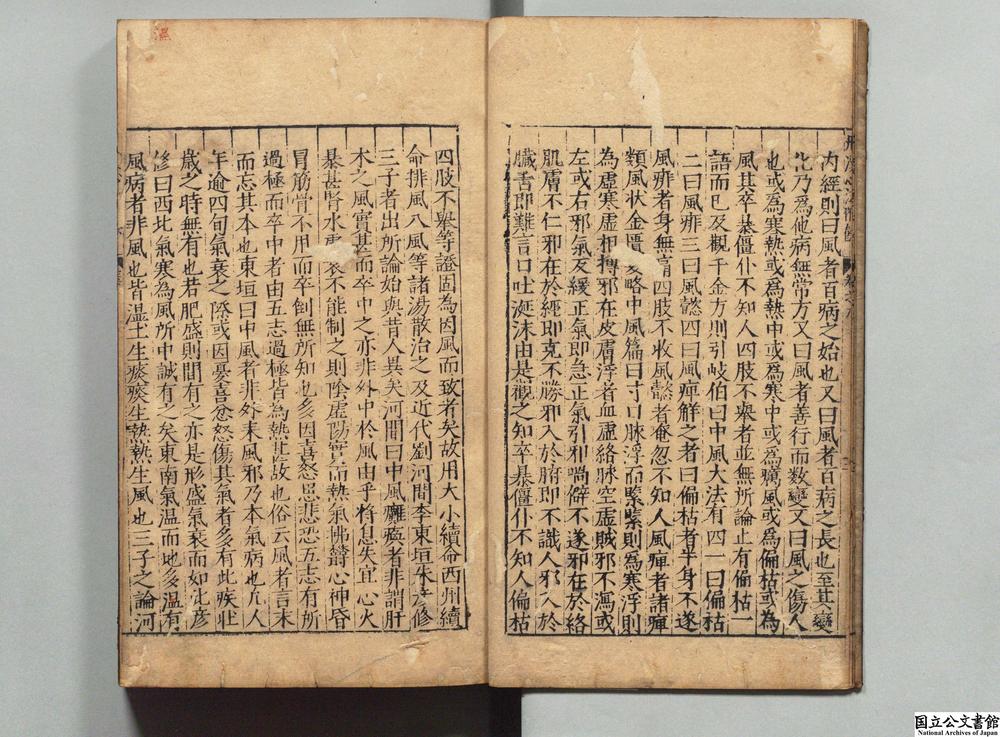 内經則曰風者百病之始也又曰風者百病之長也至其變
化乃為他病無常方又曰風者善行而数變又曰風之傷人
也或為寒熱或為熱中或為寒中或為癘風或為偏枯或為
風其卒暴僵仆不知人四肢不舉者並無所論止有偏枯一
語而已及觀千金方則引岐伯曰中風大法有四一曰偏枯
二曰風痱三曰風懿四曰風痺觧之者曰偏枯者半身不遂
風痱者身無痛四肢不收風懿者奄忽不知人風痺者諸痺
類風状金匱要略中風篇曰寸口脉浮而緊緊則為寒浮則
為虚寒虚相搏邪在皮膚浮者血虚絡脉空虚賊邪不瀉或
左或右邪氣反緩正氣即急正氣引邪喎僻不遂邪在於絡
肌膚不仁邪在於經即重不勝邪入於腑即不識人邪入於
臓舌即難言口吐涎沫由是觀之知卒暴僵仆不知人偏枯
四肢不舉等證固為因風而致者矣故用大小續命西州續
命排風八風等諸湯散治之及近代劉河間李東垣朱彦修
三子者出所論始與昔人異矣河間曰中風癱瘓者非謂肝
木之風實甚而卒中之亦非外中於風由乎將息失宜心火
暴甚腎水虚衰不能制之則陰虚陽實而熱氣怫鬱心神昏
冒筋骨不用而卒倒無所知也多因喜怒思悲恐五志有所
過極而卒中者由五志過極皆為熱甚故也俗云風者言末
而忘其本也東垣曰中風者非外来風邪乃本氣病也凢人
年逾四旬氣衰之際或因憂喜忿怒傷其氣者多有此疾壮
歳之時無有也若肥盛則間有之亦是形盛氣衰而如此彦
修曰西北氣寒為風所中誠有之矣東南氣温而地多濕有
風病者非風也皆濕土生痰痰生熱熱生風也三子之論河
国立公文書館
National Archives of Japan